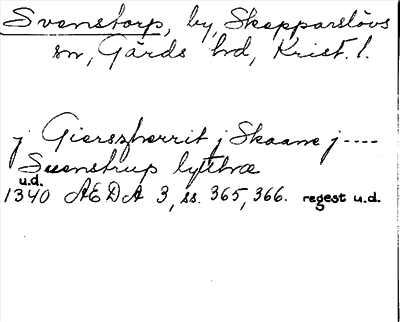 Svenstorp, by, Skepparslövs
sn, Gärds hd, Krist. l.
j Gierszherrit j Skaane j----
Suenstrup lythæ
u.d.
1340 AEDA 3, ss. 365, 366. regest u.d.